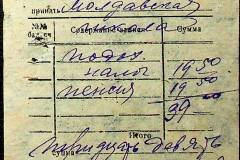 принять Молдавская
школа
№№ Содержание записи Сумма
подох.
налог 19 50
пенсия 19 50
39 —
Итого
тридцать девять
Сумма